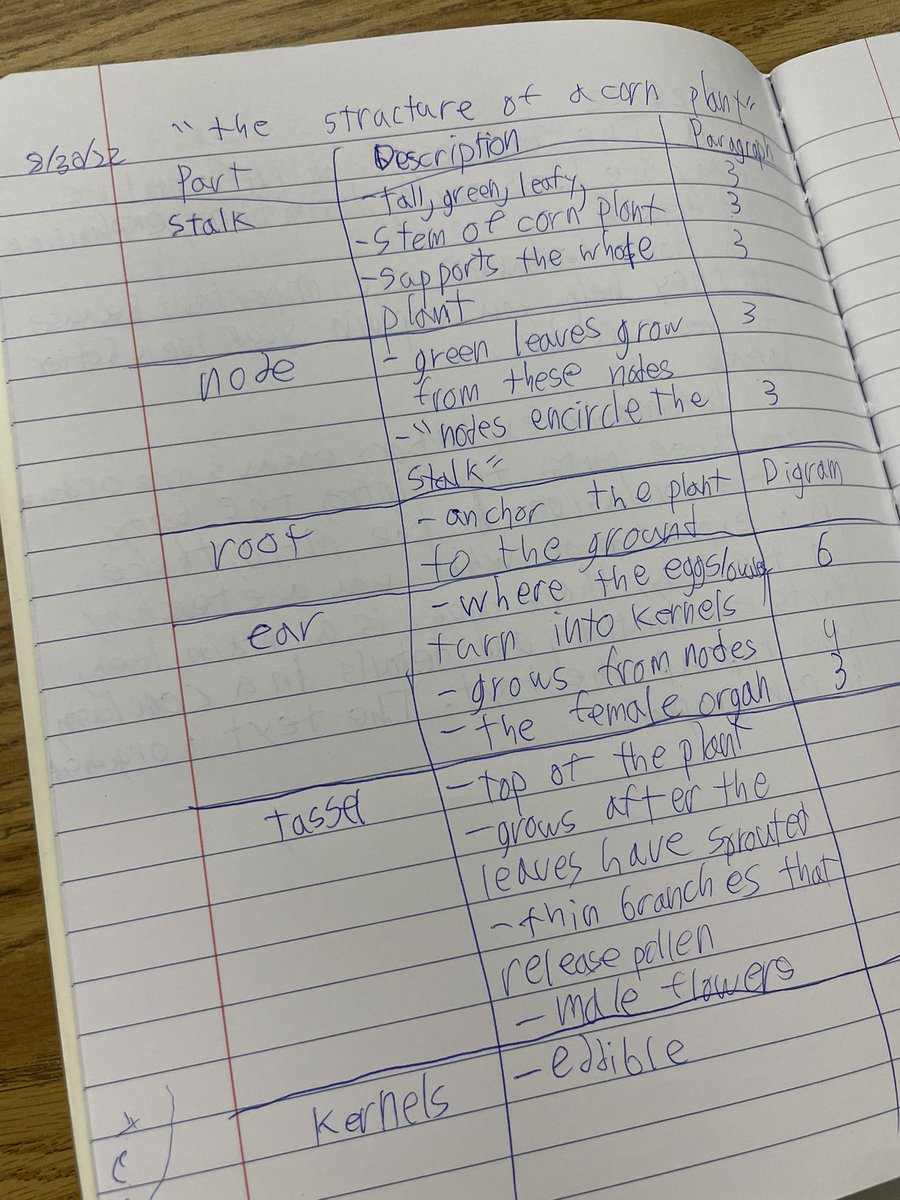 "the structure of a corn plant"
8/30/22
Part Description Paragraph
Stalk -tall, green, leafy, 3
-stem of corn plant 3
-supports the whole 3
plant
node - green leaves grow 3
from these nodes
-"nodes encircle the 3
stalk"
root -anchor the plant Digram
to the ground
ear -where the eggs 6
turn into kernels
-grows from nodes 4
-the female organ 3
tassel -top of the plant
-grows after the
leaves have sprouted
-thin branches that
release pollen
-male flowers
Kernels -eddible